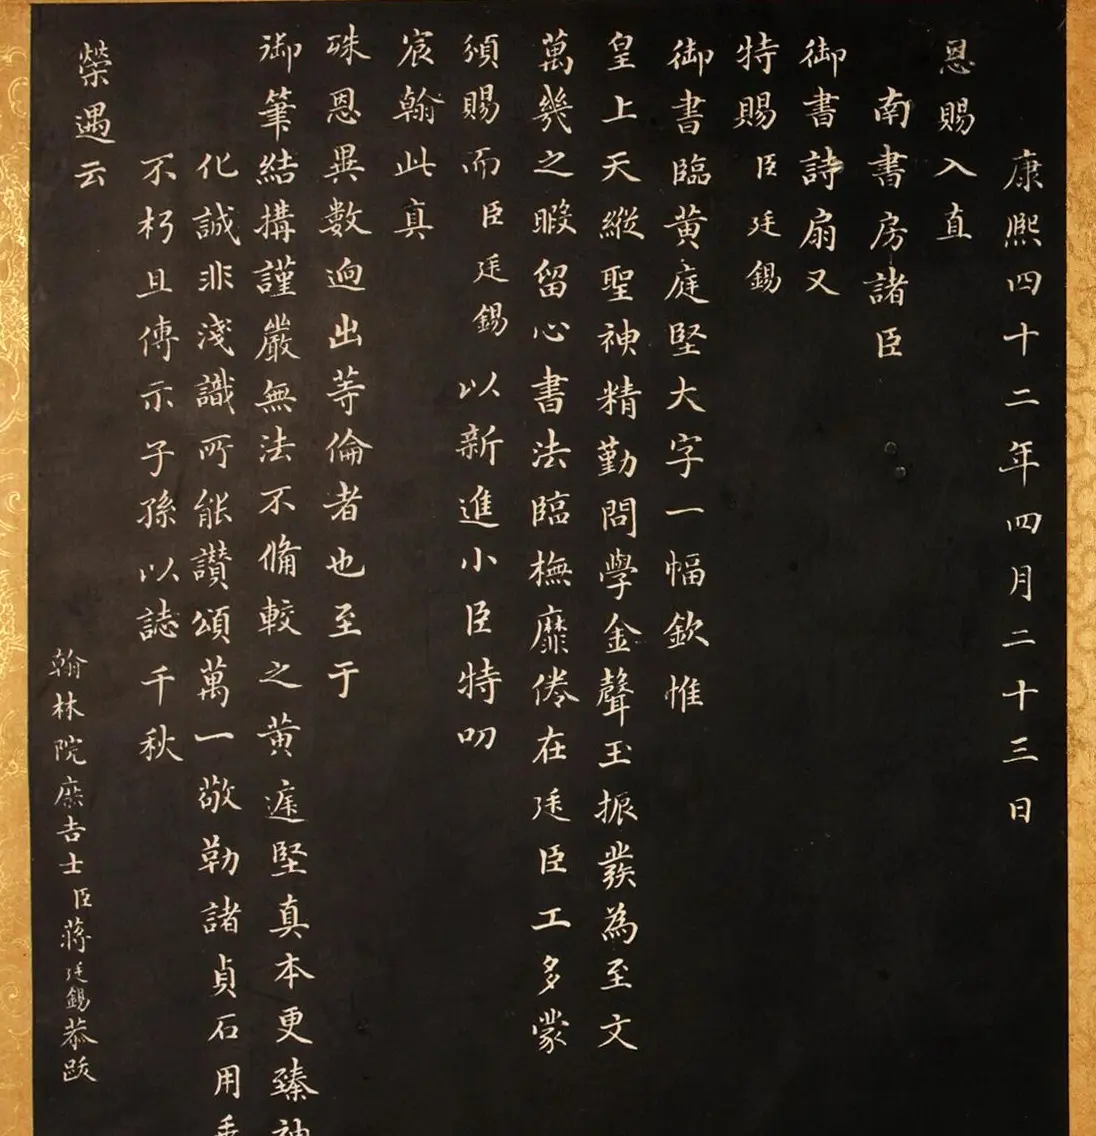 康熙四十二年四月二十三日
恩賜入直
南書房諸臣
御書詩扇又
特賜臣廷錫
御書臨黄庭堅大字一幅欽惟
皇上天縱聖神精勤問學金聲玉振發為至文
萬幾之暇留心書法臨橅靡倦在廷臣工多蒙
頒賜而臣廷錫以新進小臣特叨
宸翰此真
殊恩異數逈出等倫者也至于
御筆結搆謹嚴無法不俻較之黄庭堅真本更臻神
化誠非淺識所能讃頌萬一敬勒諸貞石用垂
不朽且傳示子孫以誌千秋
榮遇云
翰林院庶吉士臣蔣廷錫恭跋